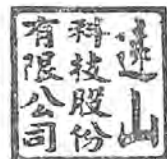 遠山
科技股份
有限公司